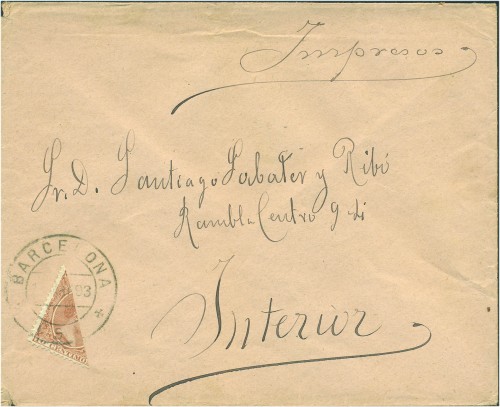 Impresos
Sr. D. Santiago Sabater y Ribó
Rambla Centro 9
Interior
BARCELONA
93
CENTIMO